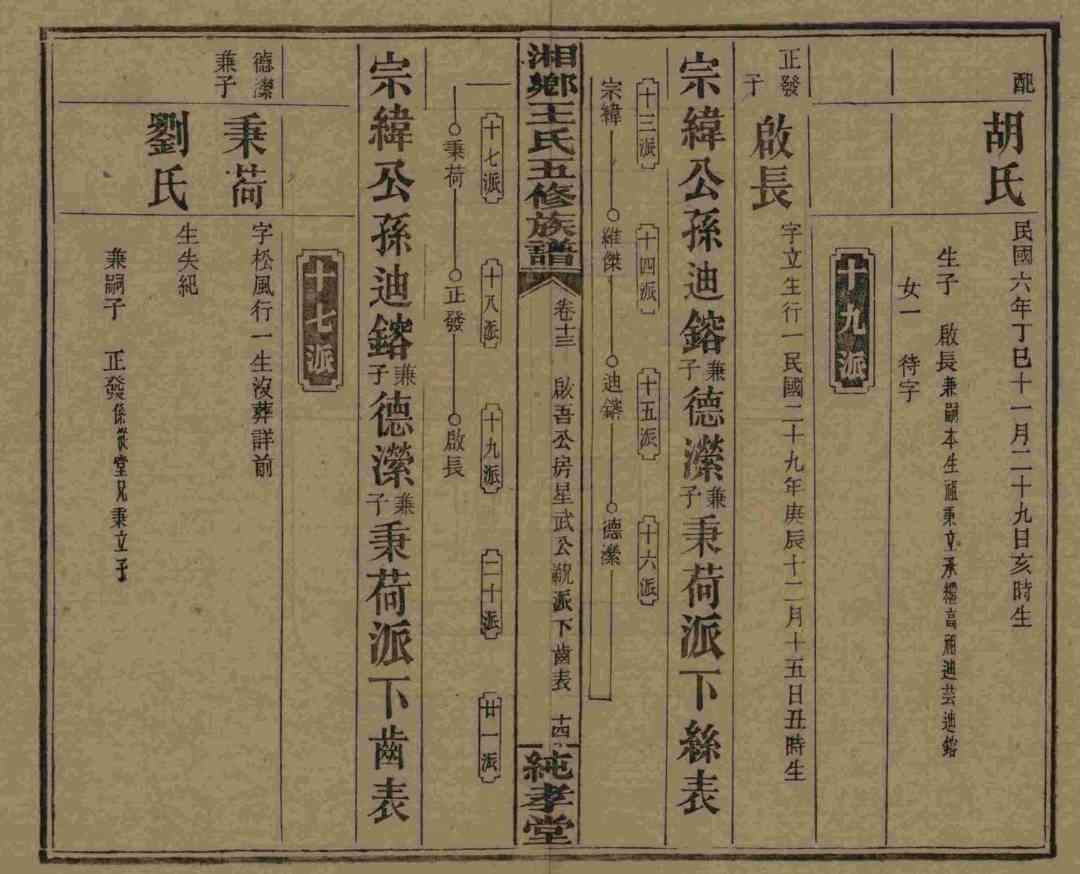 配
胡氏
民國六年丁巳十一月二十九日亥時生
生子　啟長兼嗣本生祖秉立承繼高祖迪芸迪鎔
女一　待字
十九派
正發子
啟長
字立生行一民國二十九年庚辰十二月十五日丑時生
宗緯公孫迪鎔兼子德瀠兼子秉荷派下絲表
十三派　十四派　十五派　十六派
宗緯　維傑　迪鎔　德瀠
湘鄉王氏五修族譜
卷十三　啟吾公房星武公派下齒表　十四
純孝堂
十七派　十八派　十九派　二十派　廿一派
秉荷　正發　啟長
宗緯公孫迪鎔兼子德瀠兼子秉荷派下齒表
十七派
德瀠兼子
秉荷
字松風行一生沒葬詳前
劉氏
生失紀
兼嗣子　正發係從堂兄秉立子